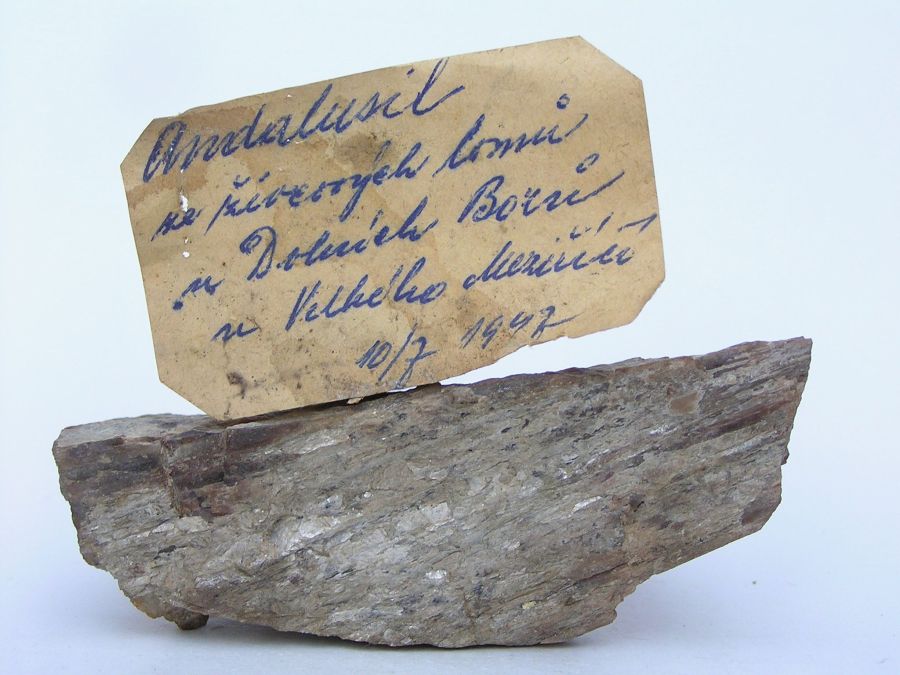 Andalusit
ze živcových lomů
u Dolních Borů
u Velkého Meziříčí
10/7 1947